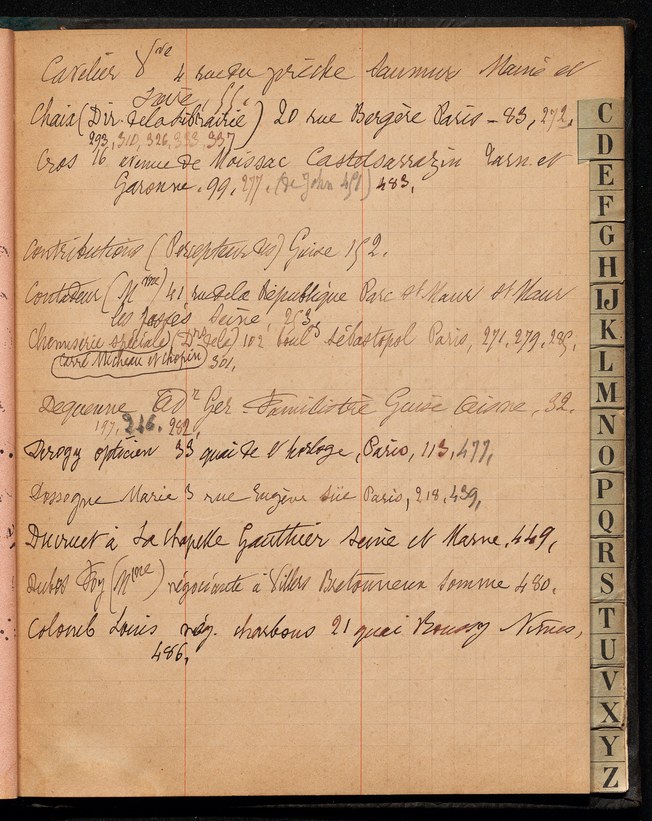 Cavelier Vve 4 rue du prêche Saumur Maine et
Loire, 55.
Chaix (Dir. de la Librairie) 20 rue Bergère Paris - 83, 272,
293, 310, 326, 333, 337
Cros 16 avenue de Moissac Castelsarrazin Tarn et
Garonne. 99, 277. (de John 451) 483.
Contributions (Percepteur des) Guise 152.
Contadeur (Mme) 41 rue de la République Parc St Maur St Maur
les fossés Seine, 253.
Chemiserie spéciale (Dir de la) 102 boulд Sébastopol Paris, 271, 279, 285,
Carré Micheau et Chopin 301.
Dequenne Adr Ger Familistère Guise Aisne, 32.
197, 246, 282,
Derogy opticien 33 quai de l'horloge, Paris, 113, 477,
Dossogne Marie 3 rue Eugène Süe Paris, 218, 439,
Ducruet à La Chapelle Gauthier Seine et Marne, 449,
Dubos Foy (Mme) négociante à Villers Bretonneux Somme 480.
Colomb Louis nég. charbons 21 quai Roussy Nîmes,
486,
C
D
E
F
G
H
IJ
K
L
M
N
O
P
Q
R
S
T
U
V
X
Y
Z